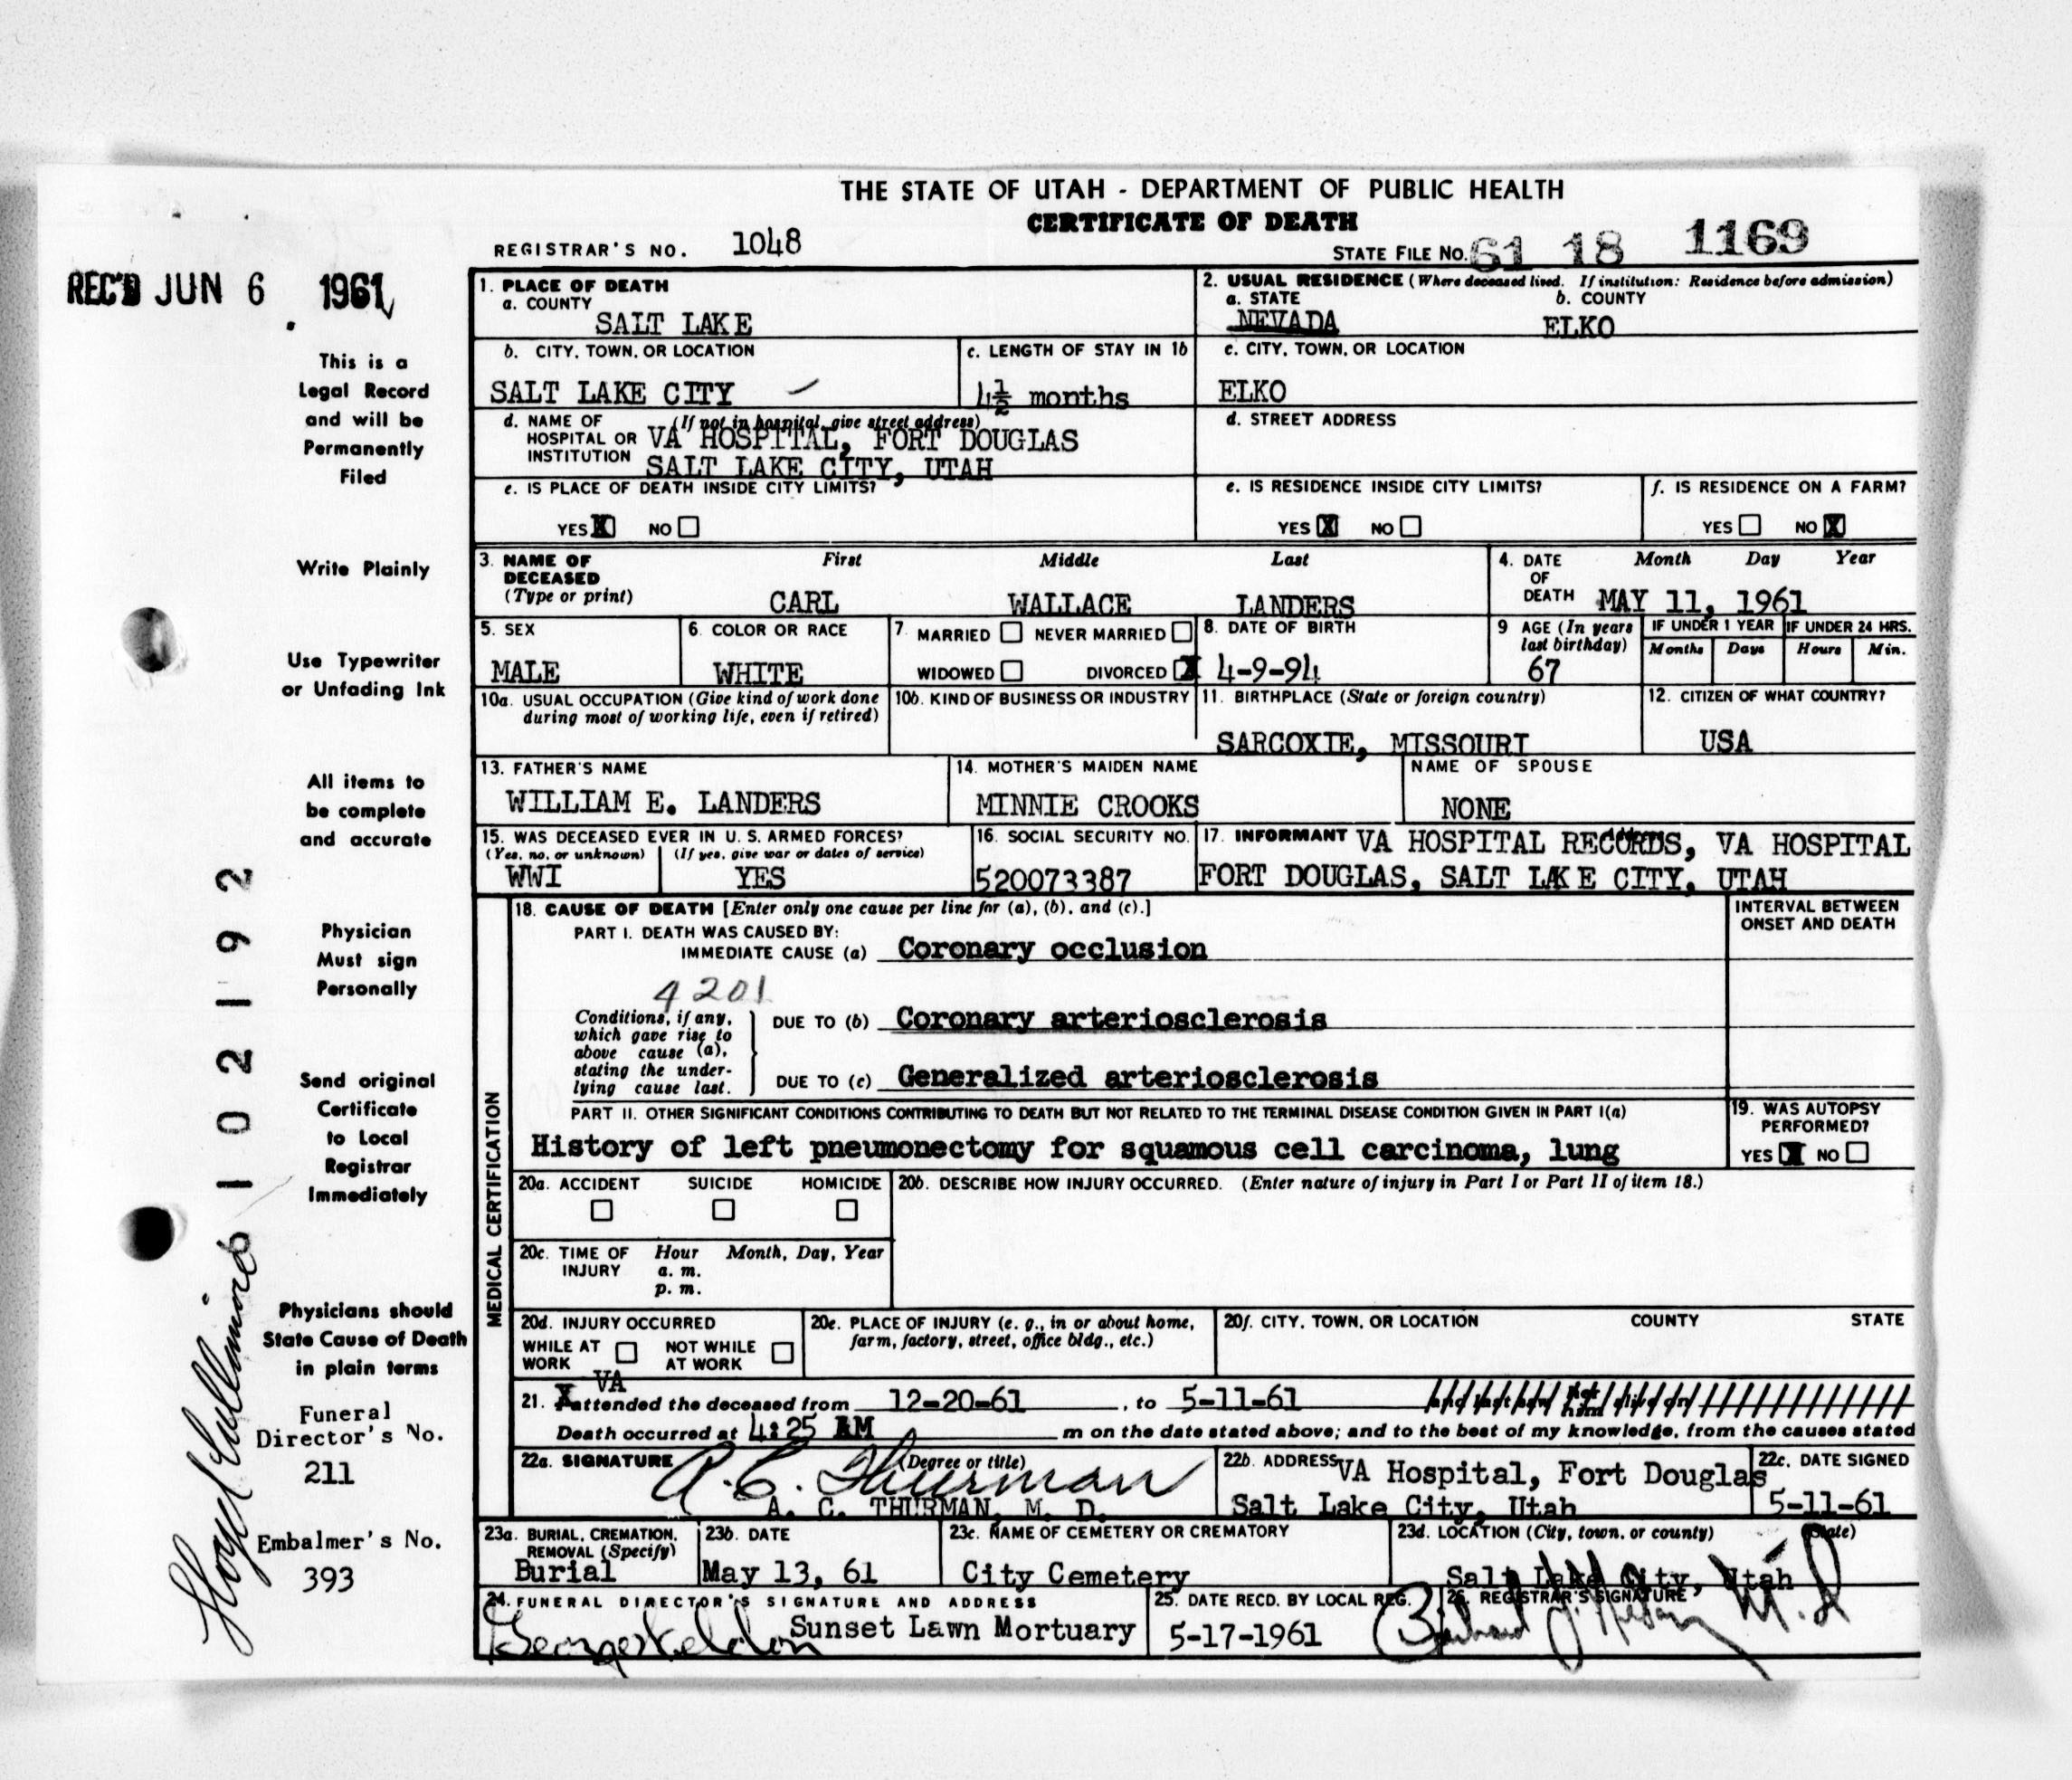 THE STATE OF UTAH - DEPARTMENT OF PUBLIC HEALTH
CERTIFICATE OF DEATH
REGISTRAR'S NO. 1048
STATE FILE NO. 61 18 1169
REC'D JUN 6 1961
This is a
Legal Record
and will be
Permanently
Filed
Write Plainly
Use Typewriter
or Unfading Ink
All items to
be complete
and accurate
Physician
Must sign
Personally
Send original
Certificate
to Local
Registrar
Immediately
Physicians should
State Cause of Death
in plain terms
Funeral
Director's No.
211
Embalmer's No.
393
102192
1. PLACE OF DEATH
a. COUNTY
SALT LAKE
2. USUAL RESIDENCE (Where deceased lived. If institution: Residence before admission)
a. STATE b. COUNTY
NEVADA ELKO
b. CITY, TOWN, OR LOCATION
SALT LAKE CITY
c. LENGTH OF STAY IN 1b
4½ months
c. CITY, TOWN, OR LOCATION
ELKO
d. NAME OF (If not in hospital, give street address)
HOSPITAL OR VA HOSPITAL, FORT DOUGLAS
INSTITUTION SALT LAKE CITY, UTAH
d. STREET ADDRESS
e. IS PLACE OF DEATH INSIDE CITY LIMITS?
YES X NO
e. IS RESIDENCE INSIDE CITY LIMITS?
YES X NO
f. IS RESIDENCE ON A FARM?
YES NO X
3. NAME OF First Middle Last
DECEASED
(Type or print) CARL WALLACE LANDERS
4. DATE Month Day Year
OF
DEATH MAY 11, 1961
5. SEX
MALE
6. COLOR OR RACE
WHITE
7. MARRIED NEVER MARRIED
WIDOWED DIVORCED X
8. DATE OF BIRTH
4-9-94
9 AGE (In years
last birthday)
67
IF UNDER 1 YEAR IF UNDER 24 HRS.
Months Days Hours Min.
10a. USUAL OCCUPATION (Give kind of work done
during most of working life, even if retired)
10b. KIND OF BUSINESS OR INDUSTRY
11. BIRTHPLACE (State or foreign country)
SARCOXIE, MISSOURI
12. CITIZEN OF WHAT COUNTRY?
USA
13. FATHER'S NAME
WILLIAM E. LANDERS
14. MOTHER'S MAIDEN NAME
MINNIE CROOKS
NAME OF SPOUSE
NONE
15. WAS DECEASED EVER IN U. S. ARMED FORCES?
(Yes, no, or unknown) (If yes, give war or dates of service)
WWI YES
16. SOCIAL SECURITY NO.
520073387
17. INFORMANT VA HOSPITAL RECORDS, VA HOSPITAL
FORT DOUGLAS, SALT LAKE CITY, UTAH
MEDICAL CERTIFICATION
18. CAUSE OF DEATH [Enter only one cause per line for (a), (b), and (c).]
INTERVAL BETWEEN
ONSET AND DEATH
PART I. DEATH WAS CAUSED BY:
IMMEDIATE CAUSE (a) Coronary occlusion
4201
Conditions, if any,
which gave rise to
above cause (a),
stating the under-
lying cause last.
DUE TO (b) Coronary arteriosclerosis
DUE TO (c) Generalized arteriosclerosis
PART II. OTHER SIGNIFICANT CONDITIONS CONTRIBUTING TO DEATH BUT NOT RELATED TO THE TERMINAL DISEASE CONDITION GIVEN IN PART I(a)
History of left pneumonectomy for squamous cell carcinoma, lung
19. WAS AUTOPSY
PERFORMED?
YES X NO
20a. ACCIDENT SUICIDE HOMICIDE
20b. DESCRIBE HOW INJURY OCCURRED. (Enter nature of injury in Part I or Part II of item 18.)
20c. TIME OF Hour Month, Day, Year
INJURY a. m.
p. m.
20d. INJURY OCCURRED
WHILE AT NOT WHILE
WORK AT WORK
20e. PLACE OF INJURY (e. g., in or about home,
farm, factory, street, office bldg., etc.)
20f. CITY, TOWN, OR LOCATION COUNTY STATE
VA
21. X attended the deceased from 12-20-61, to 5-11-61 and last saw her him alive on
Death occurred at 4:25 AM m on the date stated above; and to the best of my knowledge, from the causes stated
22a. SIGNATURE (Degree or title)
A. C. Thurman
A. C. THURMAN, M. D.
22b. ADDRESS VA Hospital, Fort Douglas
Salt Lake City, Utah
22c. DATE SIGNED
5-11-61
23a. BURIAL, CREMATION,
REMOVAL (Specify)
Burial
23b. DATE
May 13, 61
23c. NAME OF CEMETERY OR CREMATORY
City Cemetery
23d. LOCATION (City, town, or county) (State)
Salt Lake City, Utah
24. FUNERAL DIRECTOR'S SIGNATURE AND ADDRESS
Sunset Lawn Mortuary
25. DATE RECD. BY LOCAL REG.
5-17-1961
26. REGISTRAR'S SIGNATURE
M.D